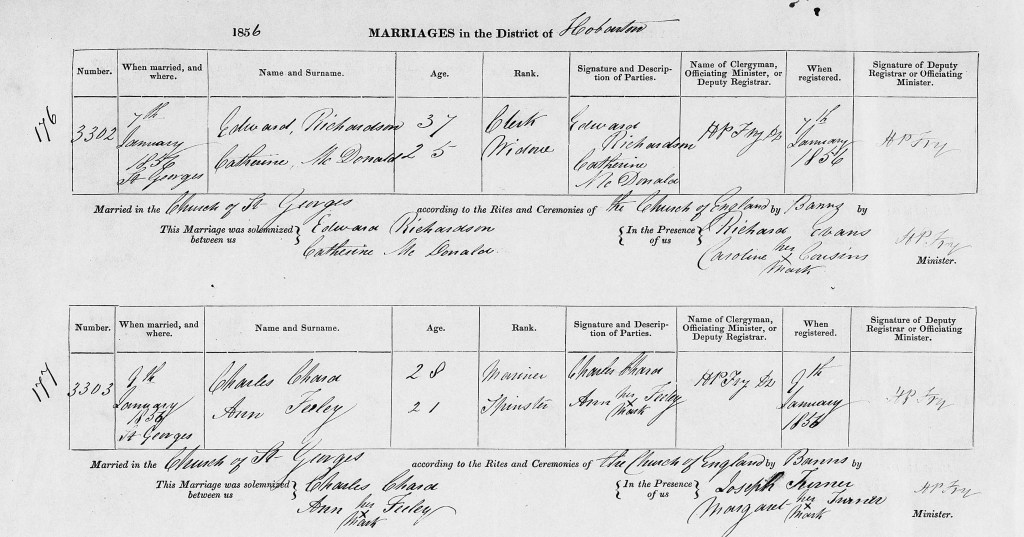 1856 MARRIAGES in the District of Hobarton
Number. When married, and where. Name and Surname. Age. Rank. Signature and Description of Parties. Name of Clergyman, Officiating Minister, or Deputy Registrar. When registered. Signature of Deputy Registrar or Officiating Minister.
176
3302 7th January 1856 St Georges
Edward Richardson 37 Clerk
Catherine Mc Donald 25 Widow
Edward Richardson
Catherine Mc Donald
H P Fry
7th January 1856
H P Fry
Married in the Church of St Georges according to the Rites and Ceremonies of the Church of England by Banns by
This Marriage was solemnized between us { Edward Richardson
Catherine Mc Donald
{ In the Presence of us } Richard Evans
Caroline her x Mark Cousins
H P Fry
Minister.
Number. When married, and where. Name and Surname. Age. Rank. Signature and Description of Parties. Name of Clergyman, Officiating Minister, or Deputy Registrar. When registered. Signature of Deputy Registrar or Officiating Minister.
177
3303 9th January 1856 St Georges
Charles Chard 28 Mariner
Ann Feeley 21 Spinster
Charles Chard
Ann her x Mark Feeley
H P Fry
9th January 1856
H P Fry
Married in the Church of St Georges according to the Rites and Ceremonies of the Church of England by Banns by
This Marriage was solemnized between us { Charles Chard
Ann her x Mark Feeley
{ In the Presence of us } Joseph Turner
Margaret her x Mark Turner
H P Fry
Minister.